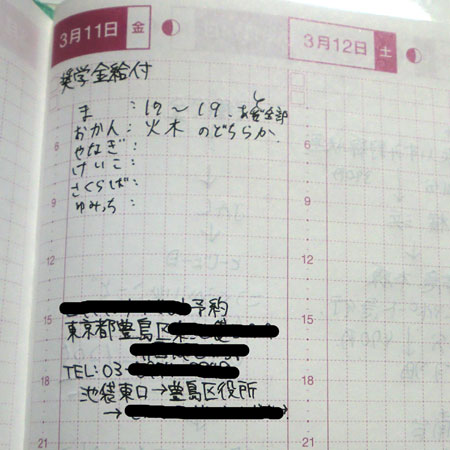 3月11日 金
3月12日 土
奨学金給付
ま : 17~19. あと全部
おかん : 火木 のどちらか.
やなぎ :
けいこ :
さくらば :
ゆみっち :
予約
東京都豊島区
TEL: 03-
池袋東口→豊島区役所
→
6
9
12
15
18
21
6
9
12
15
18
21